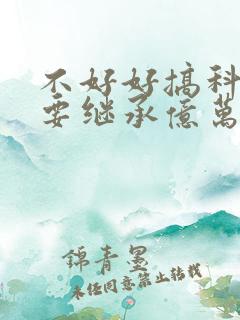 不好好搞科
要继承億萬
錦青墨
未经同意禁止转载